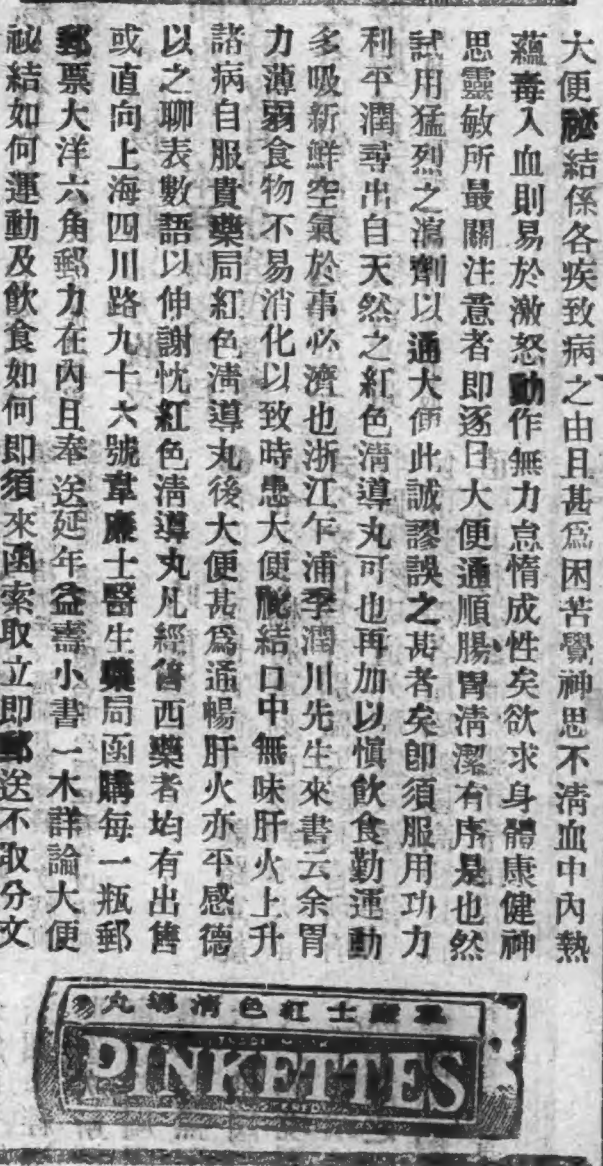 大便祕結係各疾致病之由且甚爲困苦覺神思不淸血中內熱
蘊毒入血則易於激怒動作無力怠惰成性矣欲求身體康健神
思靈敏所最關注意者即逐日大便通順腸胃淸潔有序是也然
試用猛烈之瀉劑以通大便此誠謬誤之甚者矣卽須服用功力
利平潤尋出自天然之紅色淸導丸可也再加以愼飲食勤運動
多吸新鮮空氣於事必濟也浙江乍浦季潤川先生來書云余胃
力薄弱食物不易消化以致時患大便祕結口中無味肝火上升
諸病自服貴藥局紅色淸導丸後大便甚爲通暢肝火亦平感德
以之聊表數語以伸謝忱紅色淸導丸凡經售西藥者均有出售
或直向上海四川路九十六號韋廉士醫生藥局函購每一瓶郵
郵票大洋六角郵力在內且奉送延年益壽小書一本詳論大便
祕結如何運動及飲食如何即須來函索取立即郵送不取分文
丸導淸色紅士廉韋
PINKETTES